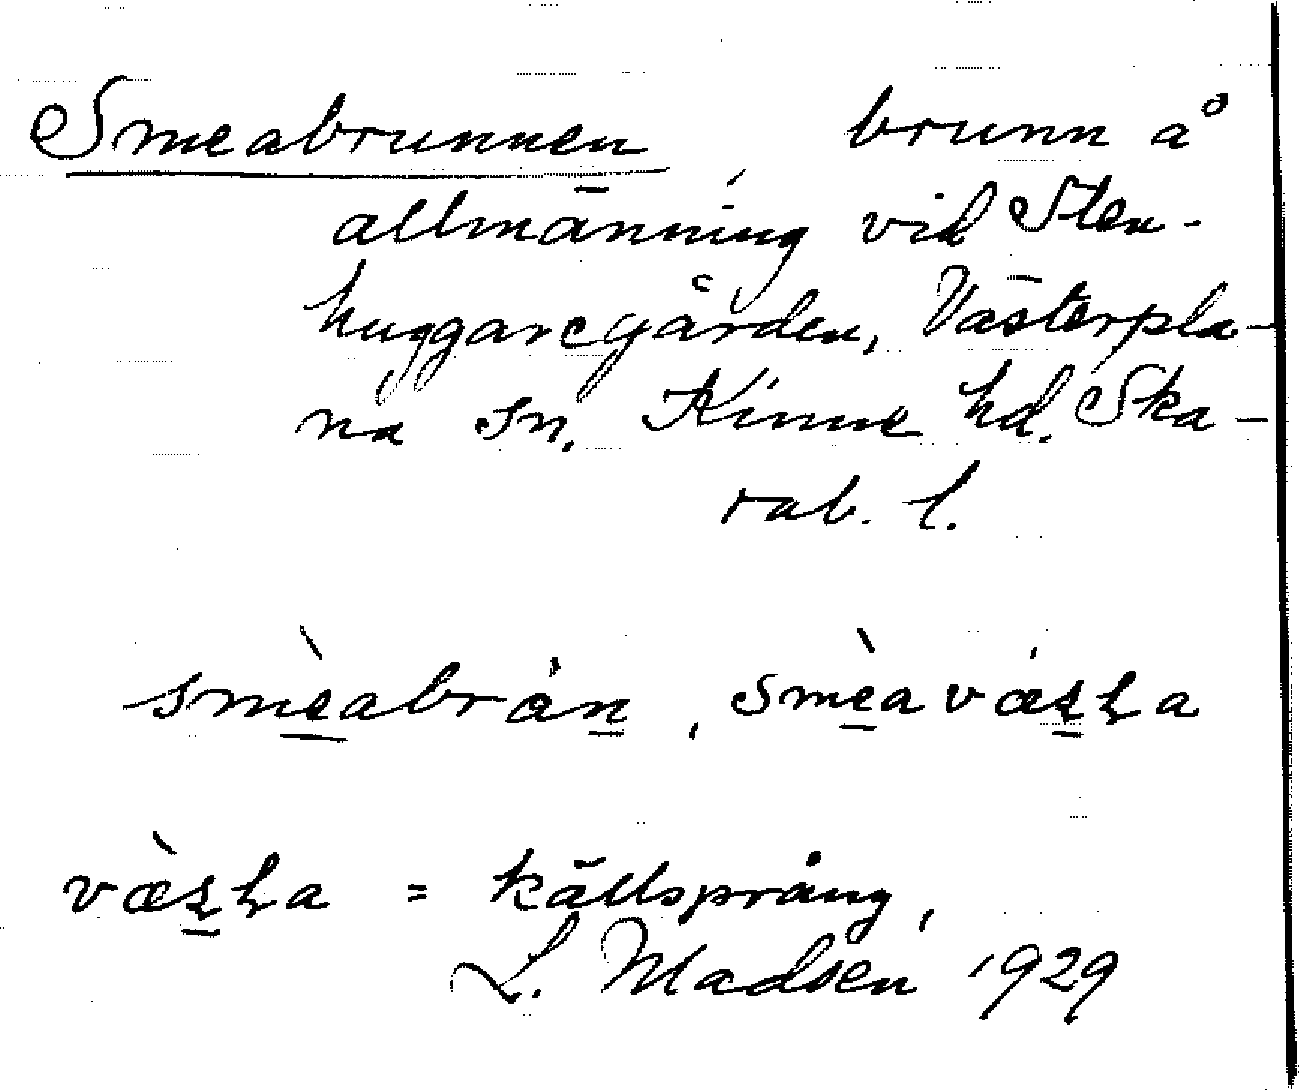 Smeabrunnen, brunn å
allmänning vid Sten-
huggaregården, Västerpla-
na sn. Kinne hd. Ska-
rab. l.
smèabrån, smèaværʂa
= källsprång,
L. Madsen 1929